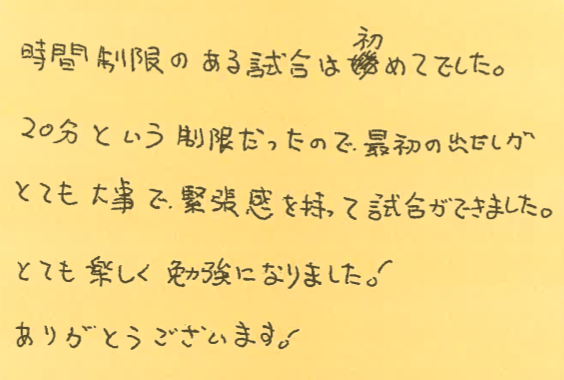 時間制限のある試合は初めてでした。
20分という制限だったので、最初の出だしが
とても大事で、緊張感を持って試合ができました。
とても楽しく勉強になりました!
ありがとうございます!